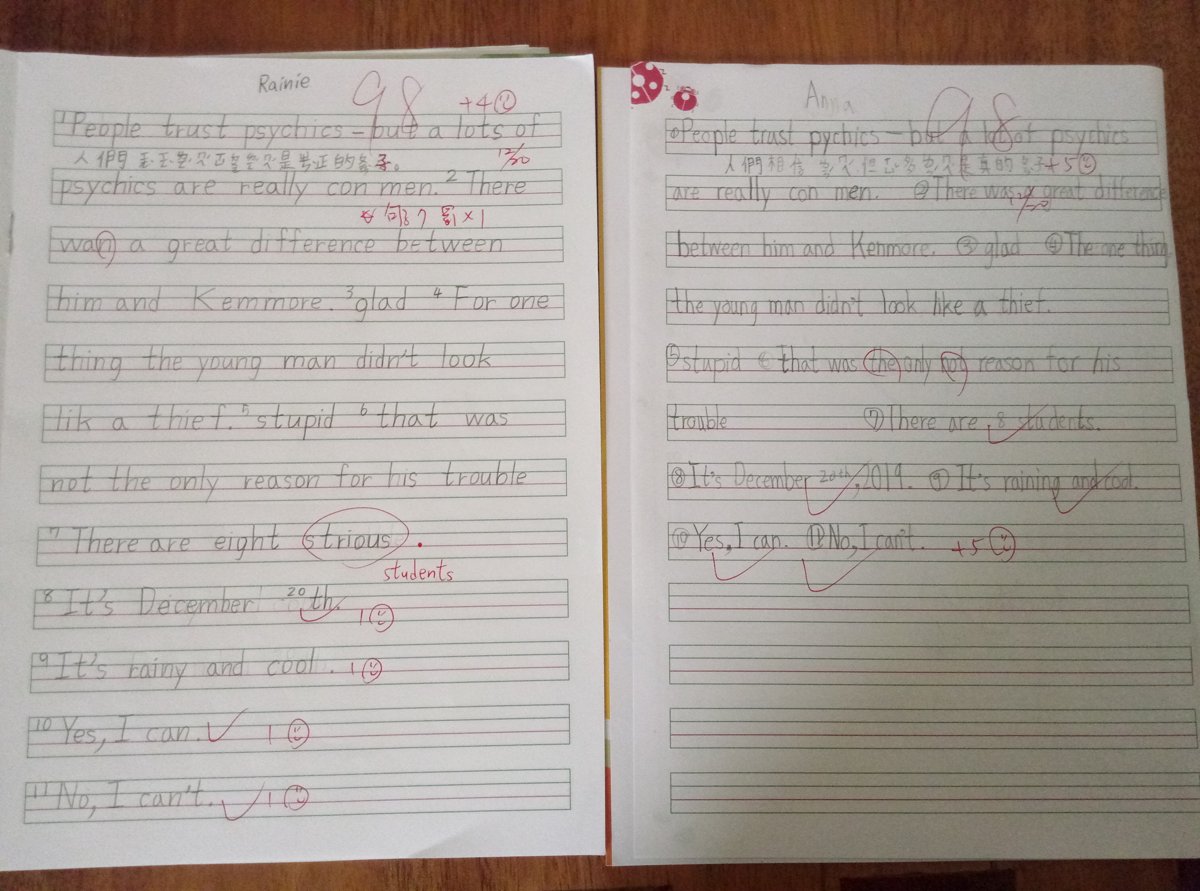 Rainie
98
+4
1 People trust psychics - but a lots of
12/20
psychics are really con men. 2 There
wan a great difference between
him and Kemmore. 3 glad 4 For one
thing the young man didn't look
lik a thief. 5 stupid 6 that was
not the only reason for his trouble
7 There are eight strious.
students
8 It's December 20th.
1
9 It's rainy and cool. 1
10 Yes, I can. 1
11 No, I can't. 1
Anna
98
① People trust pychics - but a lot of psychics
+5
are really con men. ② There was a great difference
between him and Kenmore. ③ glad ④ The one thing
the young man didn't look like a thief.
⑤ stupid ⑥ that was the only not reason for his
trouble ⑦ There are 8 students.
⑧ It's December 20th, 2019. ⑨ It's raining and cool.
⑩ Yes, I can. ⑪ No, I can't. +5